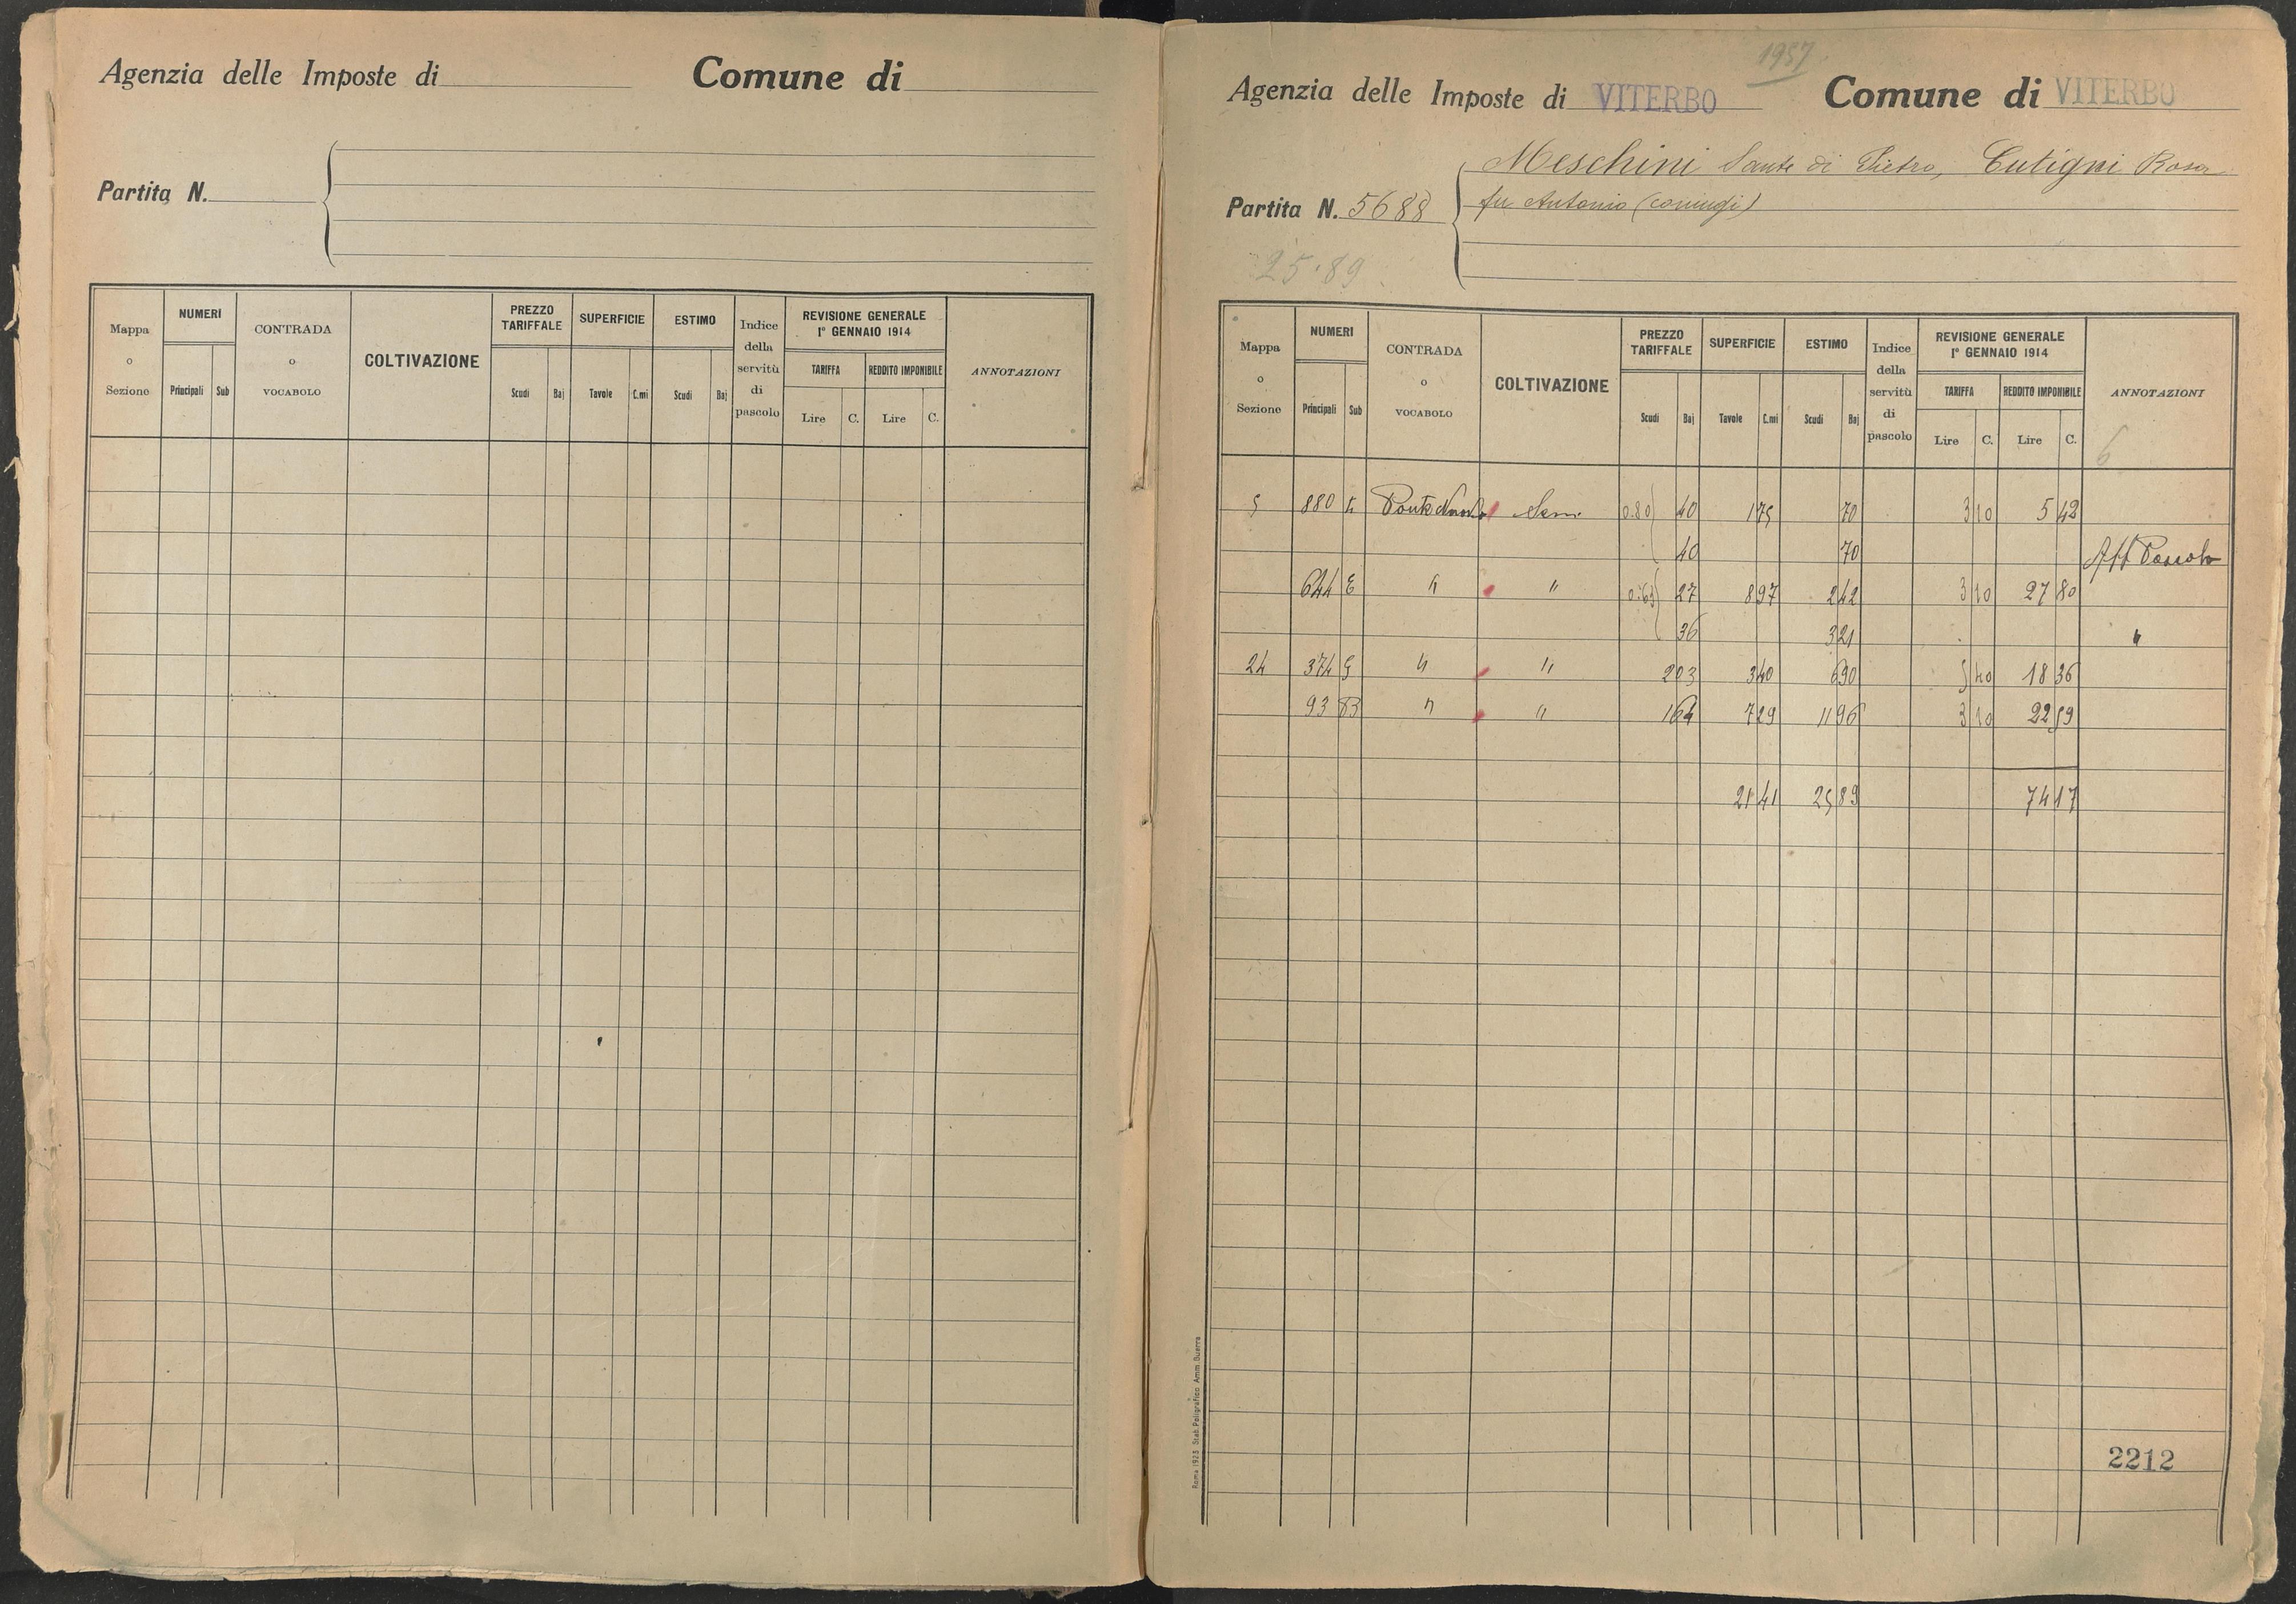 Agenzia delle Imposte di Comune di
Partita N.
Mappa o Sezione NUMERI CONTRADA o VOCABOLO COLTIVAZIONE PREZZO TARIFFALE SUPERFICIE ESTIMO Indice della servitù di pascolo REVISIONE GENERALE 1° GENNAIO 1914 ANNOTAZIONI
Principali Sub Scudi Baj Tavole C.mi Scudi Baj TARIFFA REDDITO IMPONIBILE
Lire C. Lire C.
1957
Agenzia delle Imposte di VITERBO Comune di VITERBO
Meschini Sante di Pietro, Cutigni Rosa
Partita N. 5688 fu Antonio (coniugi)
25.89
Mappa o Sezione NUMERI CONTRADA o VOCABOLO COLTIVAZIONE PREZZO TARIFFALE SUPERFICIE ESTIMO Indice della servitù di pascolo REVISIONE GENERALE 1° GENNAIO 1914 ANNOTAZIONI
Principali Sub Scudi Baj Tavole C.mi Scudi Baj TARIFFA REDDITO IMPONIBILE
Lire C. Lire C.
6
5 880 Sem. 0.80 40 1 75 70 3 10 5 42
40 70 Aff Pascolo
644 E " " 0.63 27 8 97 2 42 3 10 27 80
36 3 21 "
24 374 5 " " 2 03 3 40 6 90 5 40 18 36
93 " " 1 64 7 29 11 96 3 10 22 59
21 41 25 89 74 17
Roma 1923 Stab. Poligrafico Amm. Guerra
2212